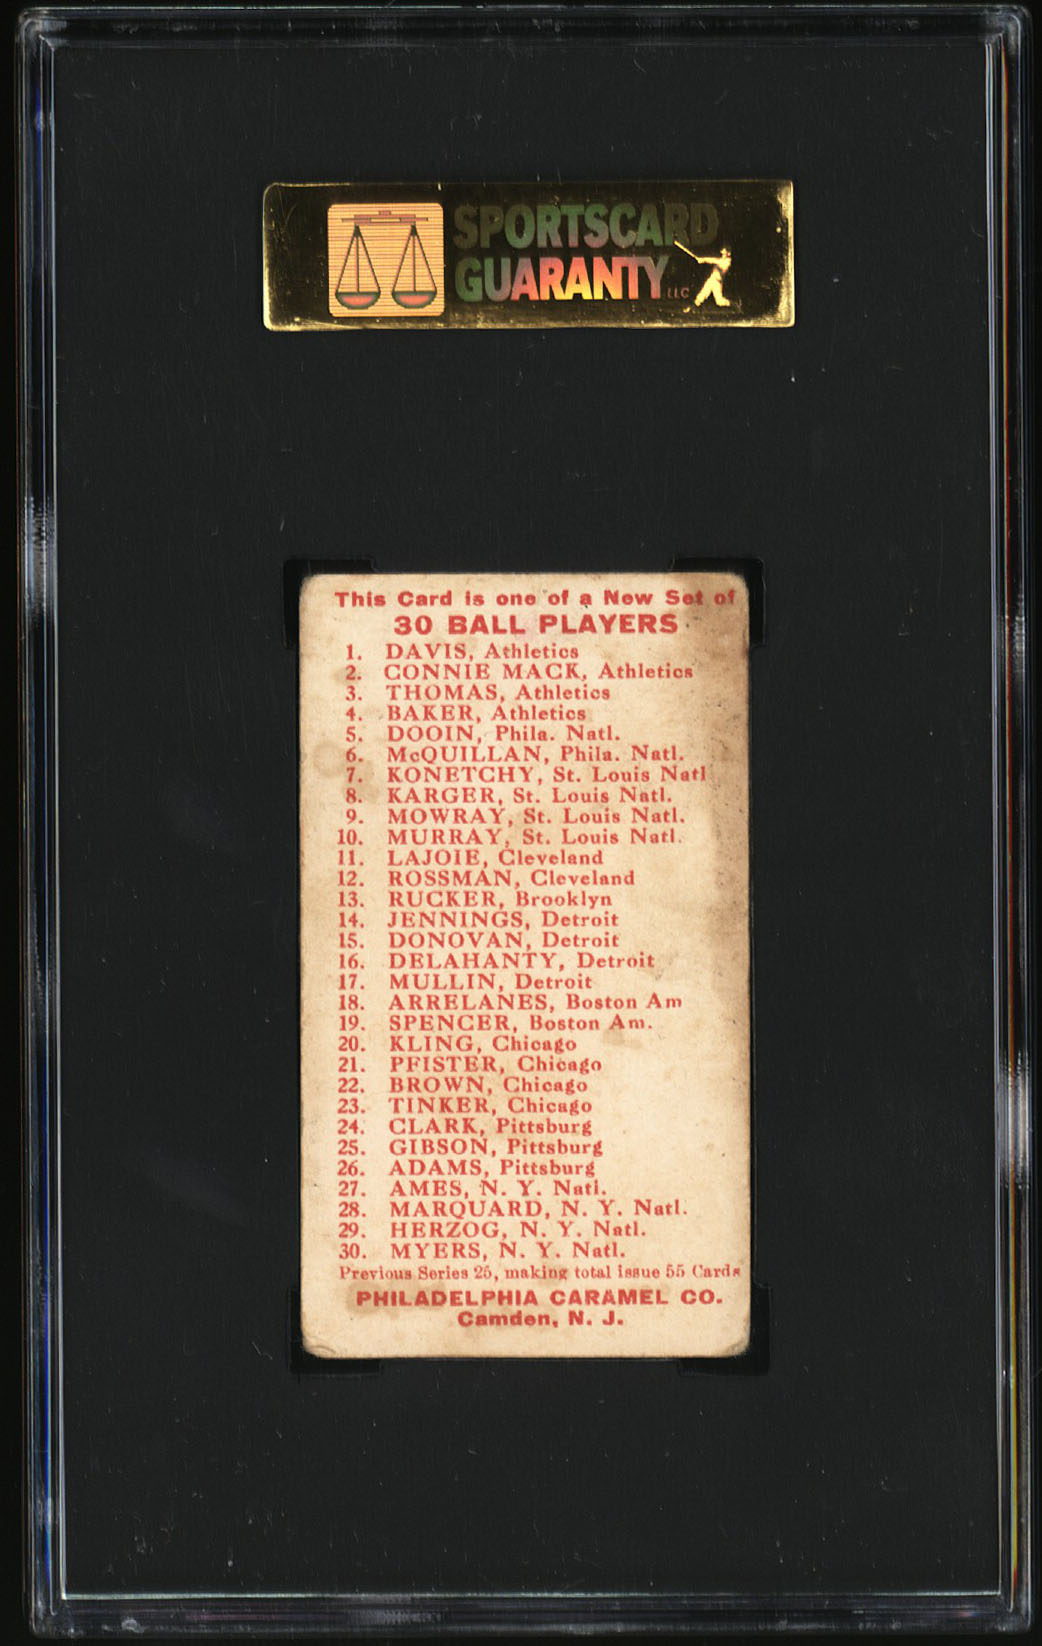 SPORTSCARD
GUARANTY LLC
This Card is one of a New Set of
30 BALL PLAYERS
1. DAVIS, Athletics
2. CONNIE MACK, Athletics
3. THOMAS, Athletics
4. BAKER, Athletics
5. DOOIN, Phila. Natl.
6. McQUILLAN, Phila. Natl.
7. KONETCHY, St. Louis Natl
8. KARGER, St. Louis Natl.
9. MOWRAY, St. Louis Natl.
10. MURRAY, St. Louis Natl.
11. LAJOIE, Cleveland
12. ROSSMAN, Cleveland
13. RUCKER, Brooklyn
14. JENNINGS, Detroit
15. DONOVAN, Detroit
16. DELAHANTY, Detroit
17. MULLIN, Detroit
18. ARRELANES, Boston Am
19. SPENCER, Boston Am.
20. KLING, Chicago
21. PFISTER, Chicago
22. BROWN, Chicago
23. TINKER, Chicago
24. CLARK, Pittsburg
25. GIBSON, Pittsburg
26. ADAMS, Pittsburg
27. AMES, N. Y. Natl.
28. MARQUARD, N. Y. Natl.
29. HERZOG, N. Y. Natl.
30. MYERS, N. Y. Natl.
Previous Series 25, making total issue 55 Cards
PHILADELPHIA CARAMEL CO.
Camden, N. J.